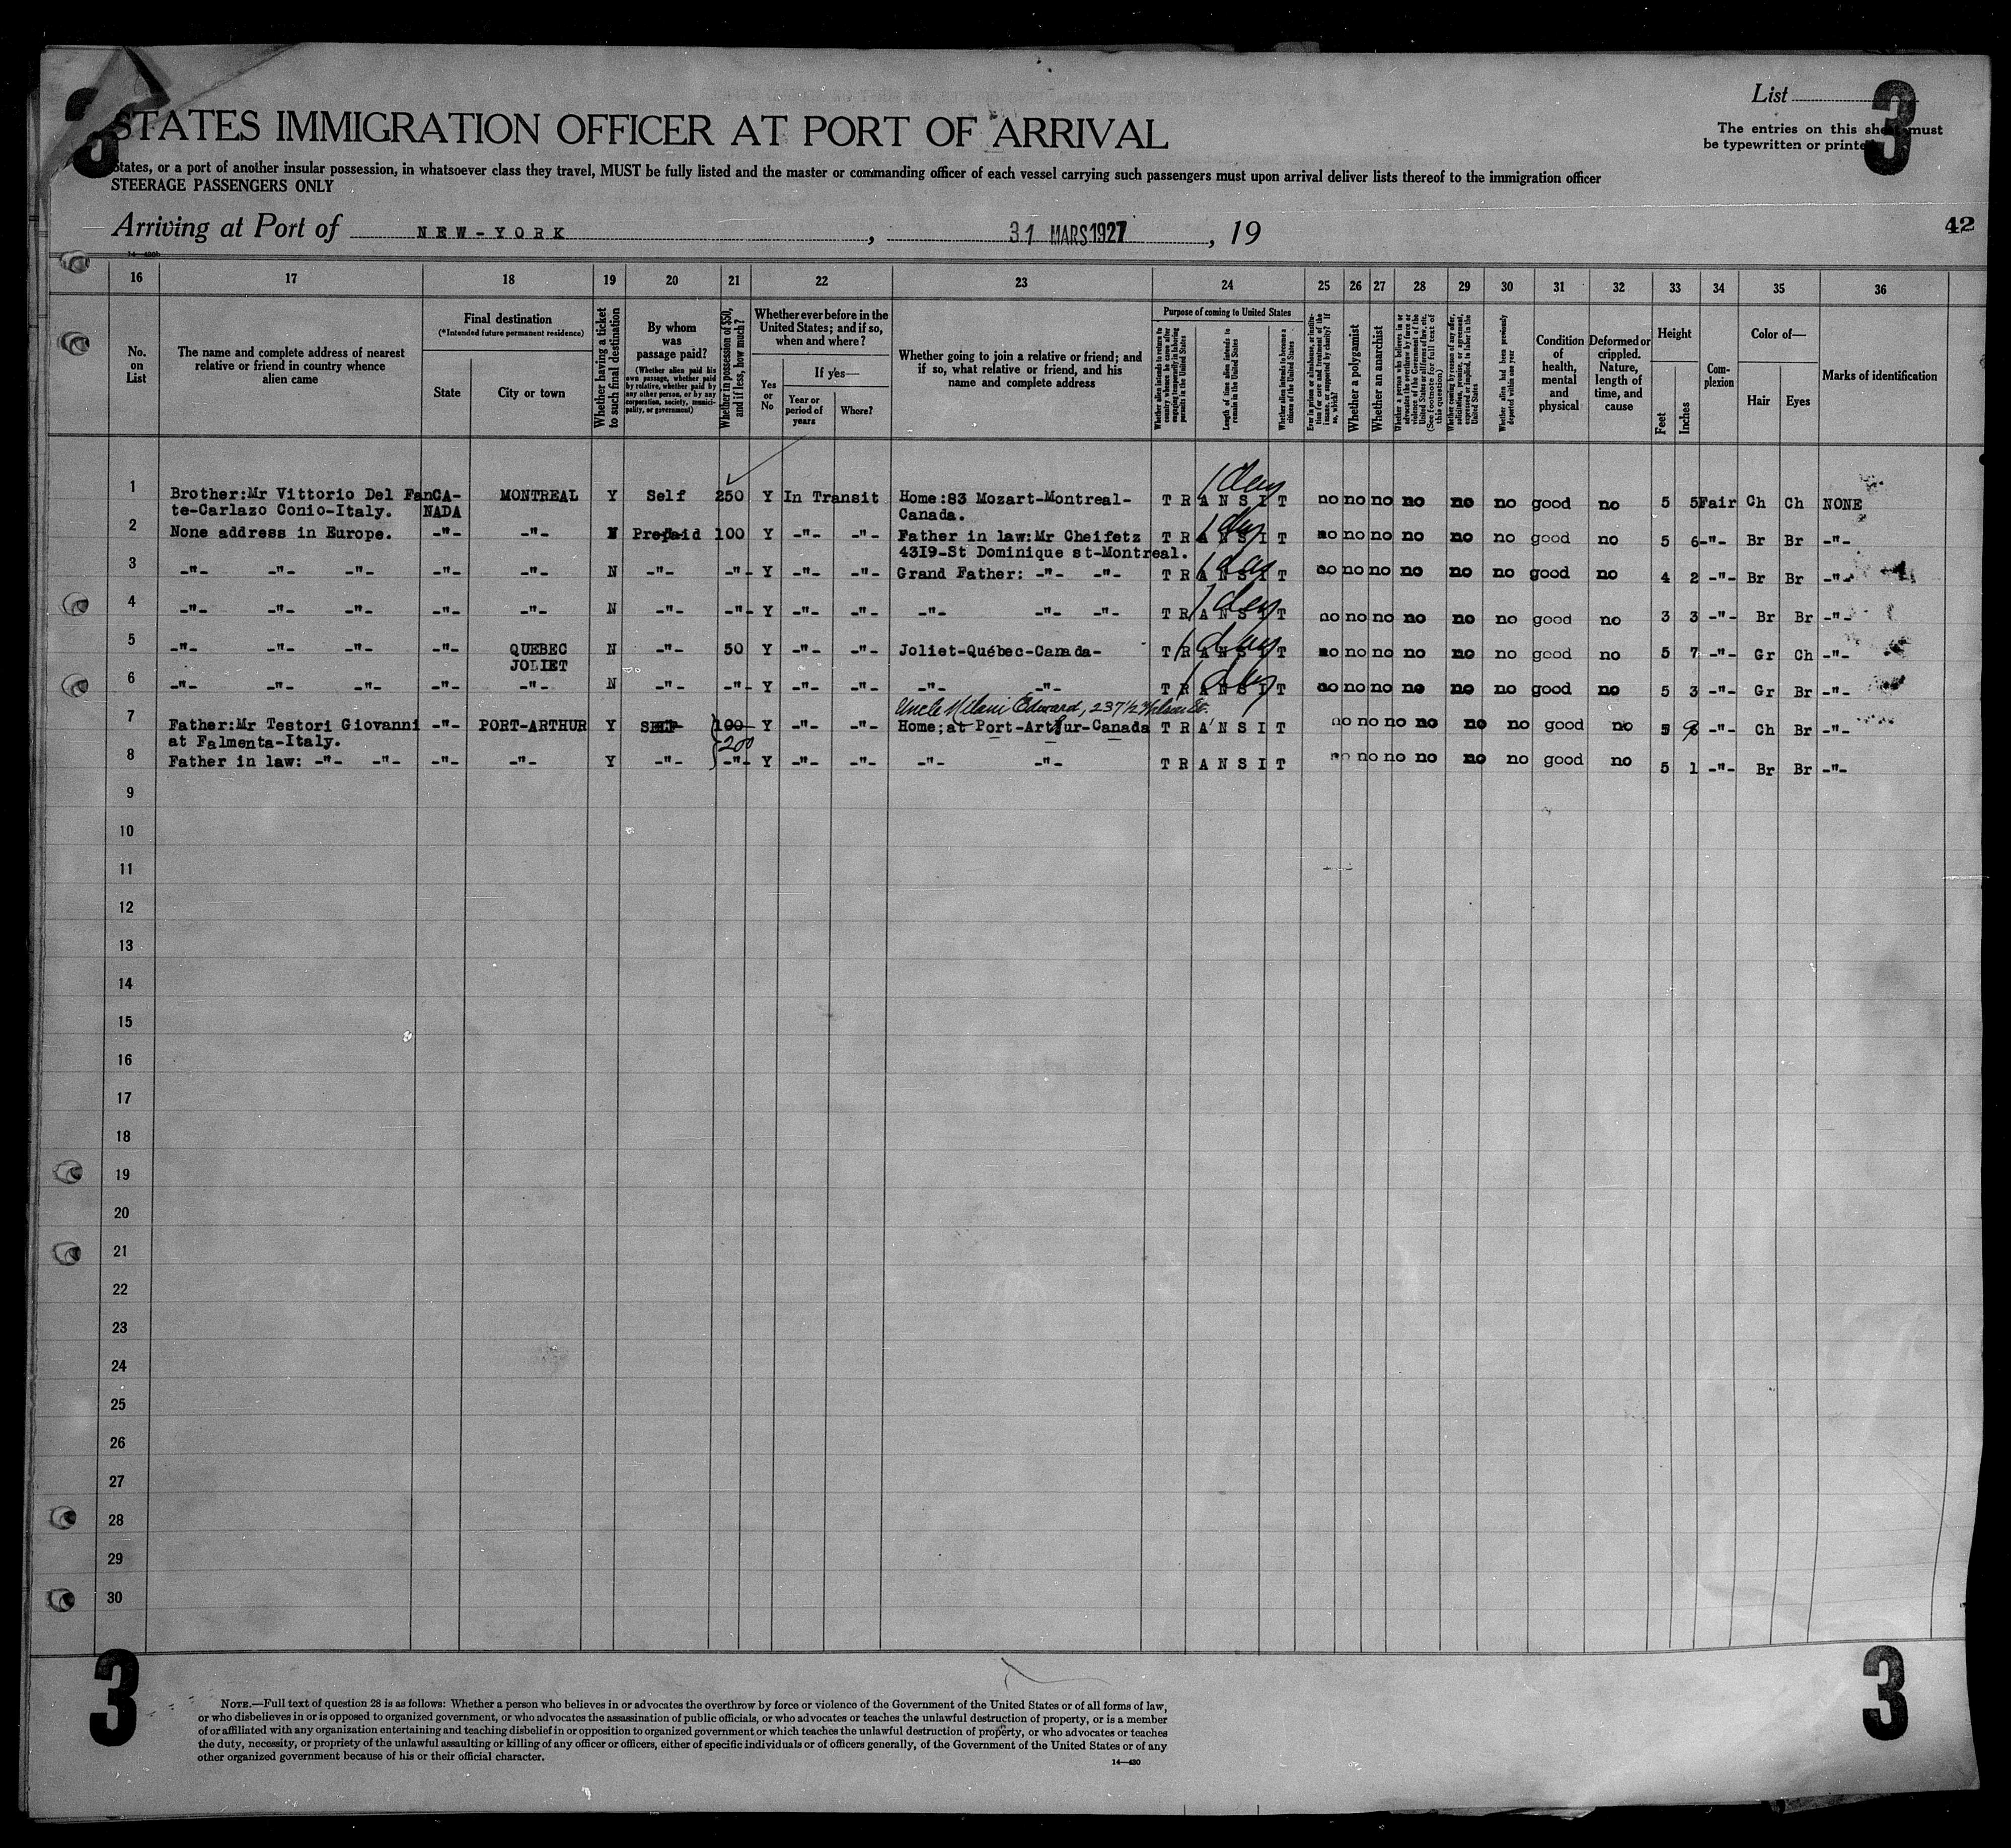 3
STATES IMMIGRATION OFFICER AT PORT OF ARRIVAL
List
3
The entries on this sheet must
be typewritten or printed
States, or a port of another insular possession, in whatsoever class they travel, MUST be fully listed and the master or commanding officer of each vessel carrying such passengers must upon arrival deliver lists thereof to the immigration officer
STEERAGE PASSENGERS ONLY
Arriving at Port of NEW-YORK, 31 MARS 1927, 19
42
16 17 18 19 20 21 22 23 24 25 26 27 28 29 30 31 32 33 34 35 36
No. on List
The name and complete address of nearest relative or friend in country whence alien came
Final destination
(*Intended future permanent residence)
State
City or town
Whether having a ticket to such final destination
By whom was passage paid?
(Whether alien paid his own passage, whether paid by relative, whether paid by any other person, or by any corporation, society, municipality, or government)
Whether in possession of $50, and if less, how much?
Whether ever before in the United States; and if so, when and where?
Yes or No
If yes—
Year or period of years
Where?
Whether going to join a relative or friend; and if so, what relative or friend, and his name and complete address
Purpose of coming to United States
Whether alien intends to return to country whence he came after engaging temporarily in laboring pursuits in the United States
Length of time alien intends to remain in the United States
Whether alien intends to become a citizen of the United States
Ever in prison or almshouse, or institution for care and treatment of the insane, or supported by charity? If so, which?
Whether a polygamist
Whether an anarchist
Whether a person who believes in or advocates the overthrow by force or violence of the Government of the United States or all forms of law, etc. (See footnote for full text of this question)
Whether coming by reason of any offer, solicitation, promise, or agreement, expressed or implied, to labor in the United States
Whether alien had been previously deported within one year
Condition of health, mental and physical
Deformed or crippled. Nature, length of time, and cause
Height
Feet
Inches
Complexion
Color of—
Hair
Eyes
Marks of identification
1 Brother:Mr Vittorio Del Fan CA- MONTREAL Y Self 250 Y In Transit Home:83 Mozart-Montreal- TRANSIT 1 day no no no no no no good no 5 5 Fair Ch Ch NONE
te-Carlazo Conio-Italy. NADA Canada.
2 None address in Europe. -"- -"- N Prepaid 100 Y -"- -"- Father in law:Mr Cheifetz TRANSIT 1 day no no no no no no good no 5 6 -"- Br Br -"-
4319-St Dominique st-Montreal.
3 -"- -"- -"- -"- -"- N -"- -"- Y -"- -"- Grand Father: -"- -"- TRANSIT 1 day no no no no no no good no 4 2 -"- Br Br -"-
4 -"- -"- -"- -"- -"- N -"- -"- Y -"- -"- -"- -"- -"- TRANSIT 1 day no no no no no no good no 3 3 -"- Br Br -"-
5 -"- -"- -"- -"- QUEBEC N -"- 50 Y -"- -"- Joliet-Québec-Canada- TRANSIT 1 day no no no no no no good no 5 7 -"- Gr Ch -"-
JOLIET
6 -"- -"- -"- -"- -"- N -"- -"- Y -"- -"- -"- -"- TRANSIT 1 day no no no no no no good no 5 3 -"- Gr Br -"-
Uncle Milani Edward, 237 1/2 Wilson St.
7 Father:Mr Testori Giovanni -"- PORT-ARTHUR Y SELF 100 Y -"- -"- Home;at Port-Arthur-Canada TRANSIT no no no no no no good no 5 -"- Ch Br -"-
at Falmenta-Italy. 200
8 Father in law: -"- -"- -"- -"- Y -"- -"- Y -"- -"- -"- -"- TRANSIT no no no no no no good no 5 1 -"- Br Br -"-
9
10
11
12
13
14
15
16
17
18
19
20
21
22
23
24
25
26
27
28
29
30
3
3
NOTE.—Full text of question 28 is as follows: Whether a person who believes in or advocates the overthrow by force or violence of the Government of the United States or of all forms of law,
or who disbelieves in or is opposed to organized government, or who advocates the assassination of public officials, or who advocates or teaches the unlawful destruction of property, or is a member
of or affiliated with any organization entertaining and teaching disbelief in or opposition to organized government or which teaches the unlawful destruction of property, or who advocates or teaches
the duty, necessity, or propriety of the unlawful assaulting or killing of any officer or officers, either of specific individuals or of officers generally, of the Government of the United States or of any
other organized government because of his or their official character.
14—430